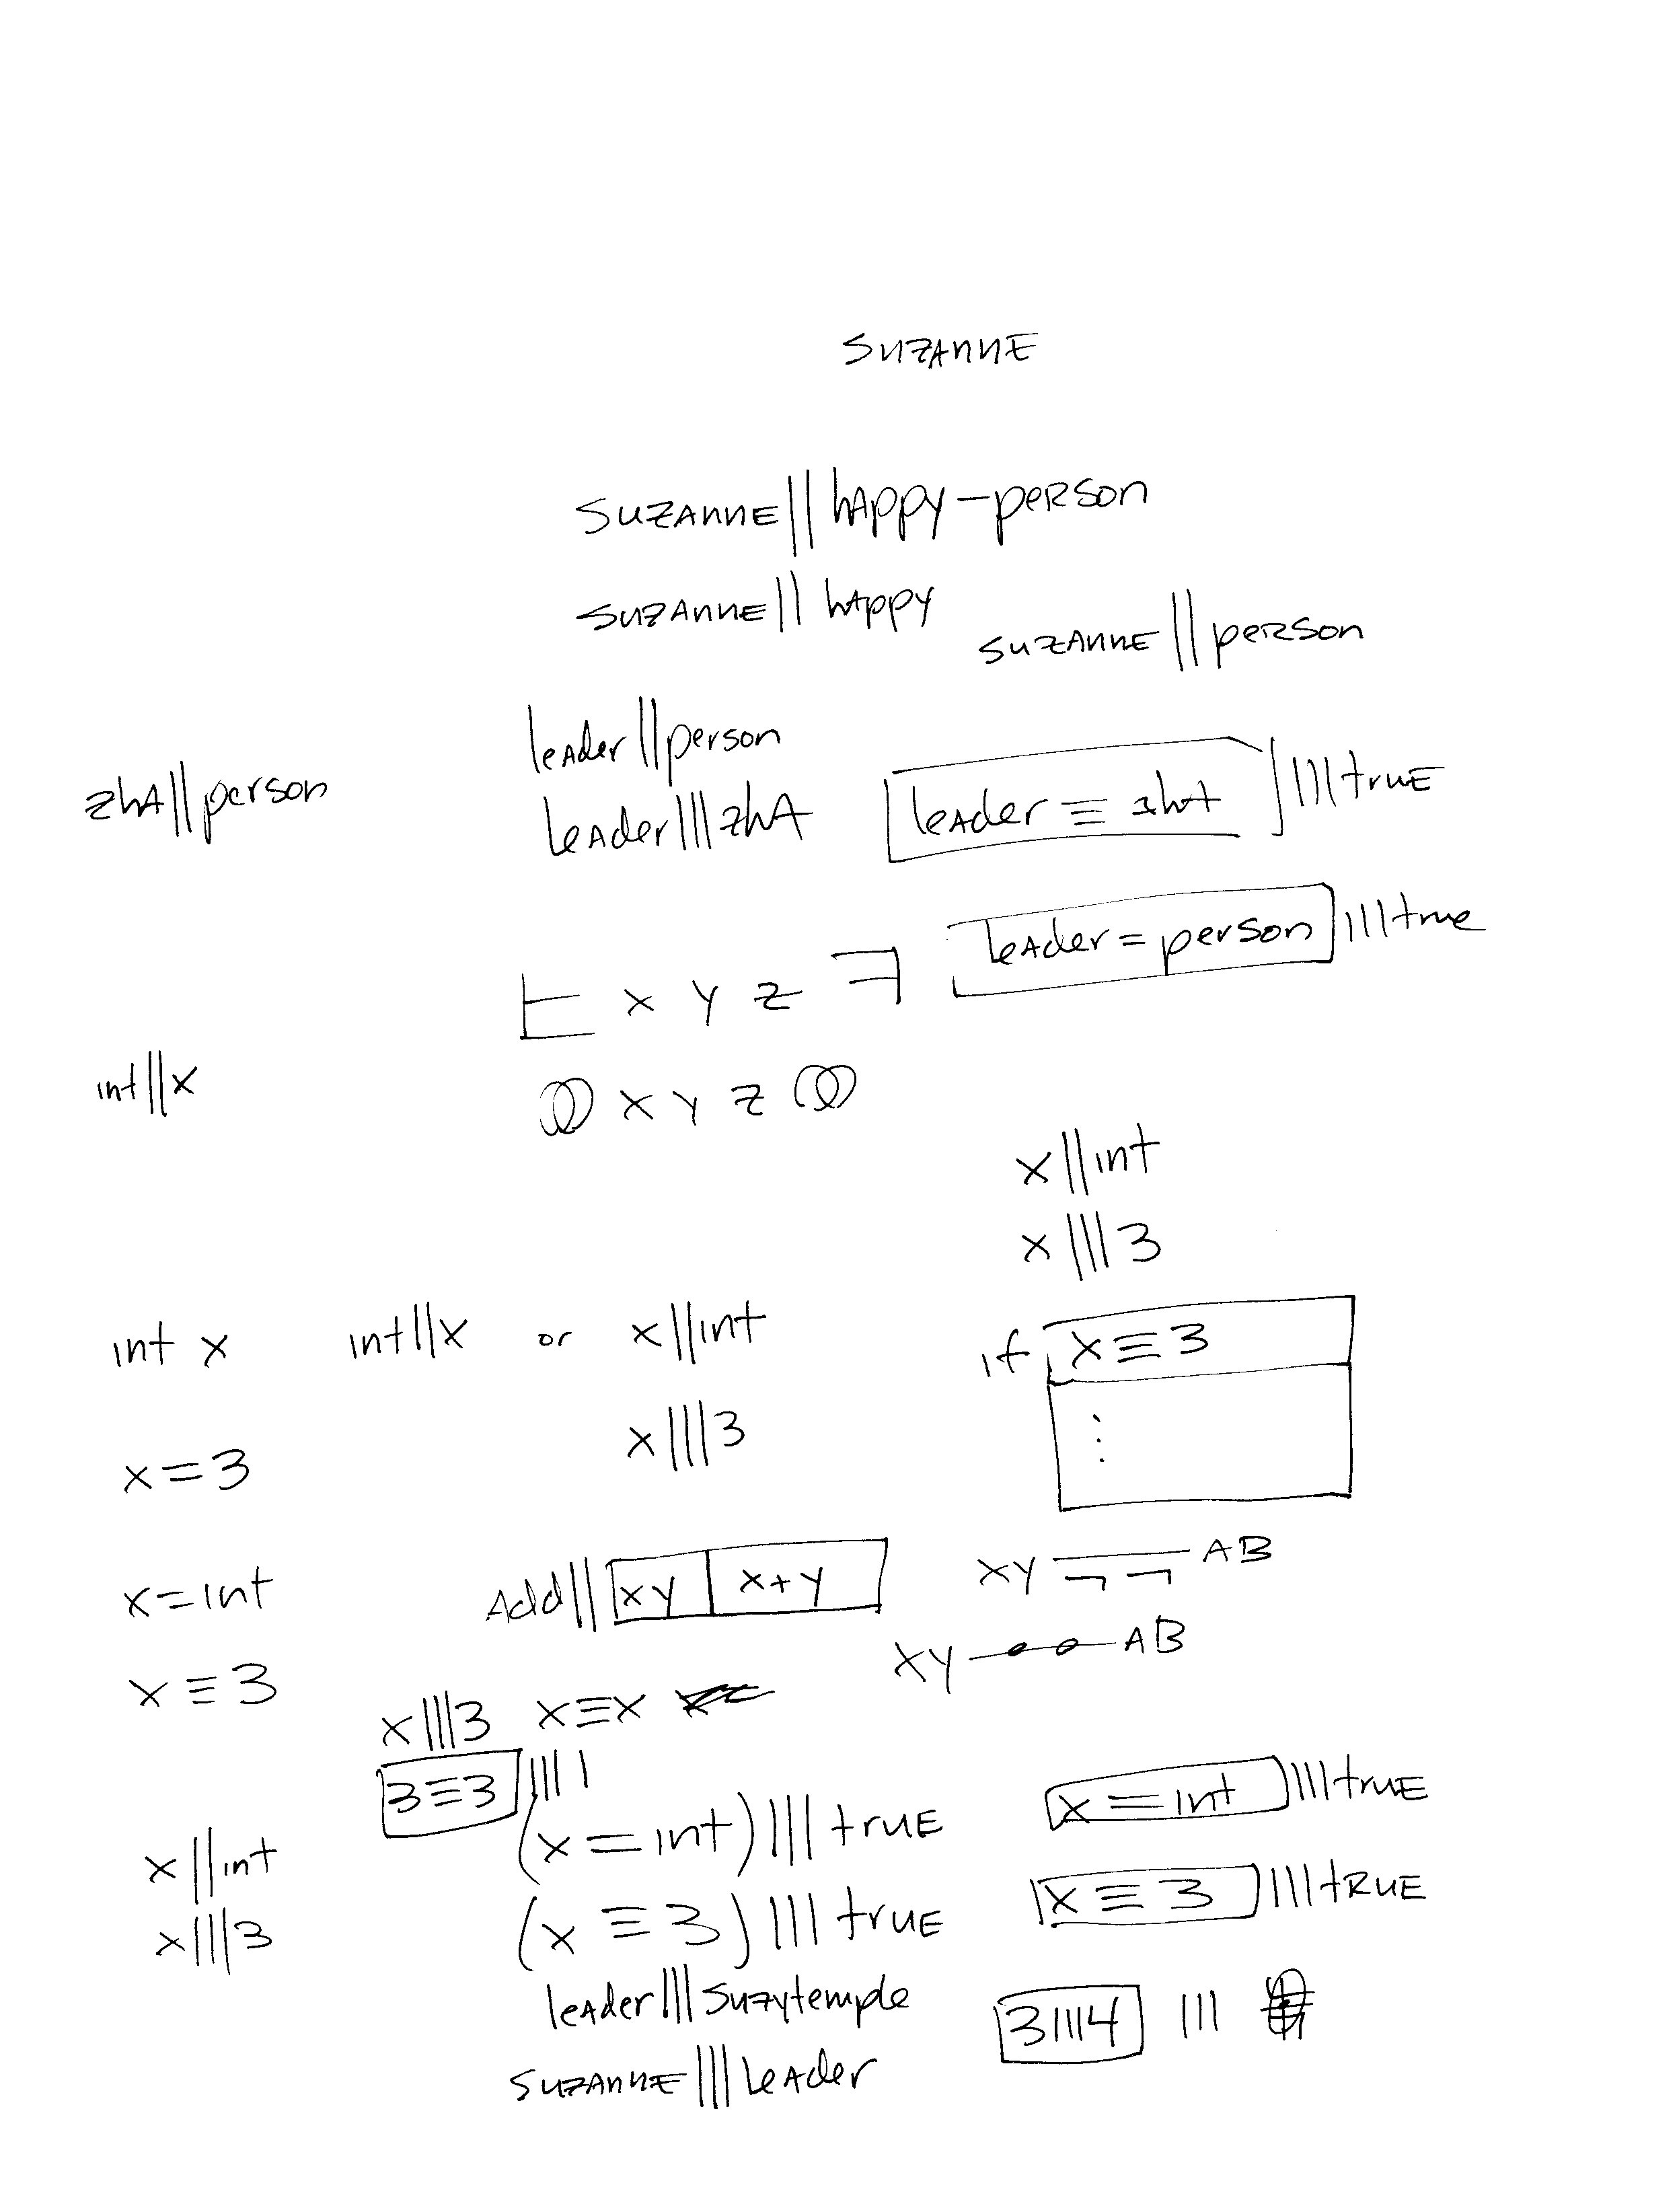 SUZANNE
SUZANNE||happy-person
SUZANNE||happy
SUZANNE||person
leader||person
zhA||person
leader|||zhA
leader ≡ zhA |||true
leader = person |||true
x y z
int||x
x y z
x||int
x|||3
int x int||x or x||int
if x≡3
x|||3
⋮
x=3
x=int
Add|| xy x+y
xy AB
xy AB
x≡3
x|||3 x≡x
3≡3 |||1
x||int
(x=int)|||true
x=int |||true
x|||3
(x≡3)|||true
x≡3 |||true
leader|||suzytemple
3|||4 |||
SUZANNE|||leader